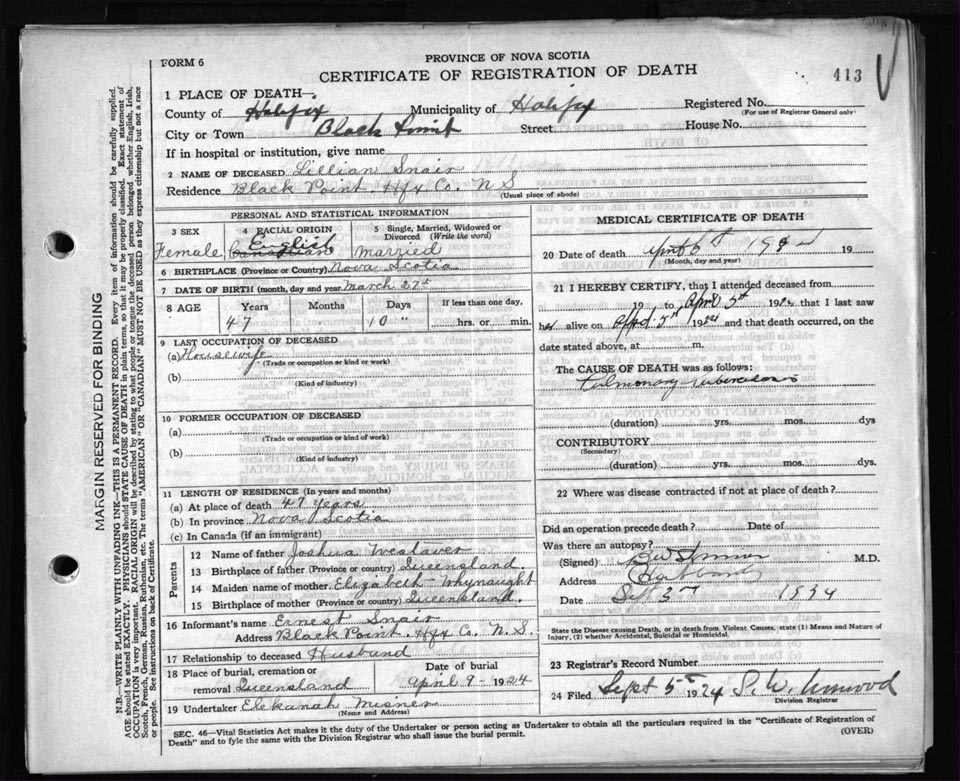 FORM 6
PROVINCE OF NOVA SCOTIA
CERTIFICATE OF REGISTRATION OF DEATH
413
1 PLACE OF DEATH—
County of Halifax Municipality of Halifax Registered No.
(For use of Registrar General only)
City or Town Black Point Street House No.
If in hospital or institution, give name
2 NAME OF DECEASED Lillian Snair
Residence Black Point Hfx Co. N S
(Usual place of abode)
PERSONAL AND STATISTICAL INFORMATION
3 SEX
Female
4 RACIAL ORIGIN
English
Canadian
5 Single, Married, Widowed or Divorced (Write the word)
Married
6 BIRTHPLACE (Province or Country) Nova Scotia
7 DATE OF BIRTH (month, day and year) March 27th
8 AGE Years Months Days If less than one day,
47 10 " hrs. or min.
9 LAST OCCUPATION OF DECEASED
(a) Housewife
(Trade or occupation or kind or work)
(b)
(Kind of industry)
10 FORMER OCCUPATION OF DECEASED
(a)
(Trade or occupation or kind or work)
(b)
(Kind of industry)
11 LENGTH OF RESIDENCE (In years and months)
(a) At place of death 47 Years
(b) In province Nova Scotia
(c) In Canada (if an immigrant)
Parents
12 Name of father Joshua Weslaver
13 Birthplace of father (Province or country) Queensland.
14 Maiden name of mother Elizabeth Whynaught
15 Birthplace of mother (Province or country) Queensland.
16 Informant's name Ernest Snair
Address Black Point Hfx Co. N. S.
17 Relationship to deceased Husband
18 Place of burial, cremation or removal Queensland
Date of burial
April 9 - 1924
19 Undertaker Elekanah Misner
(Name and Address)
MEDICAL CERTIFICATE OF DEATH
20 Date of death April 6th 19
(Month, day and year)
21 I HEREBY CERTIFY, that I attended deceased from
19 to April 5th 1924 that I last saw
her alive on April 5th 1924 and that death occurred, on the
date stated above, at m.
The CAUSE OF DEATH was as follows:
Pulmonary Tuberculosis
(duration) yrs. mos. dys
CONTRIBUTORY
(Secondary)
(duration) yrs. mos. dys.
22 Where was disease contracted if not at place of death?
Did an operation precede death? Date of
Was there an autopsy?
(Signed) M.D.
Address Hubbards
Date Sept 3rd 1934
State the Disease causing Death, or in death from Violent Causes, state (1) Means and Nature of Injury, (2) whether Accidental, Suicidal or Homicidal.
23 Registrar's Record Number
24 Filed Sept 5th 1924 S. W.
Division Registrar
SEC. 46—Vital Statistics Act makes it the duty of the Undertaker or person acting as Undertaker to obtain all the particulars required in the "Certificate of Registration of
Death" and to fyle the same with the Division Registrar who shall issue the burial permit.
(OVER)
MARGIN RESERVED FOR BINDING
N.B.—WRITE PLAINLY WITH UNFADING INK—THIS IS A PERMANENT RECORD. Every item of information should be carefully supplied.
AGE should be stated EXACTLY. PHYSICIANS should STATE CAUSE OF DEATH in plain terms, so that it may be properly classified. Exact statement of
OCCUPATION is very important. RACIAL ORIGIN will be described by stating to what people or tongue the deceased person belonged, whether English, Irish,
Scotch, French, German, Russian, Ruthenian, etc. The terms "AMERICAN" OR "CANADIAN" MUST NOT BE USED as they express citizenship but not a race
or people. See instructions on back of Certificate.